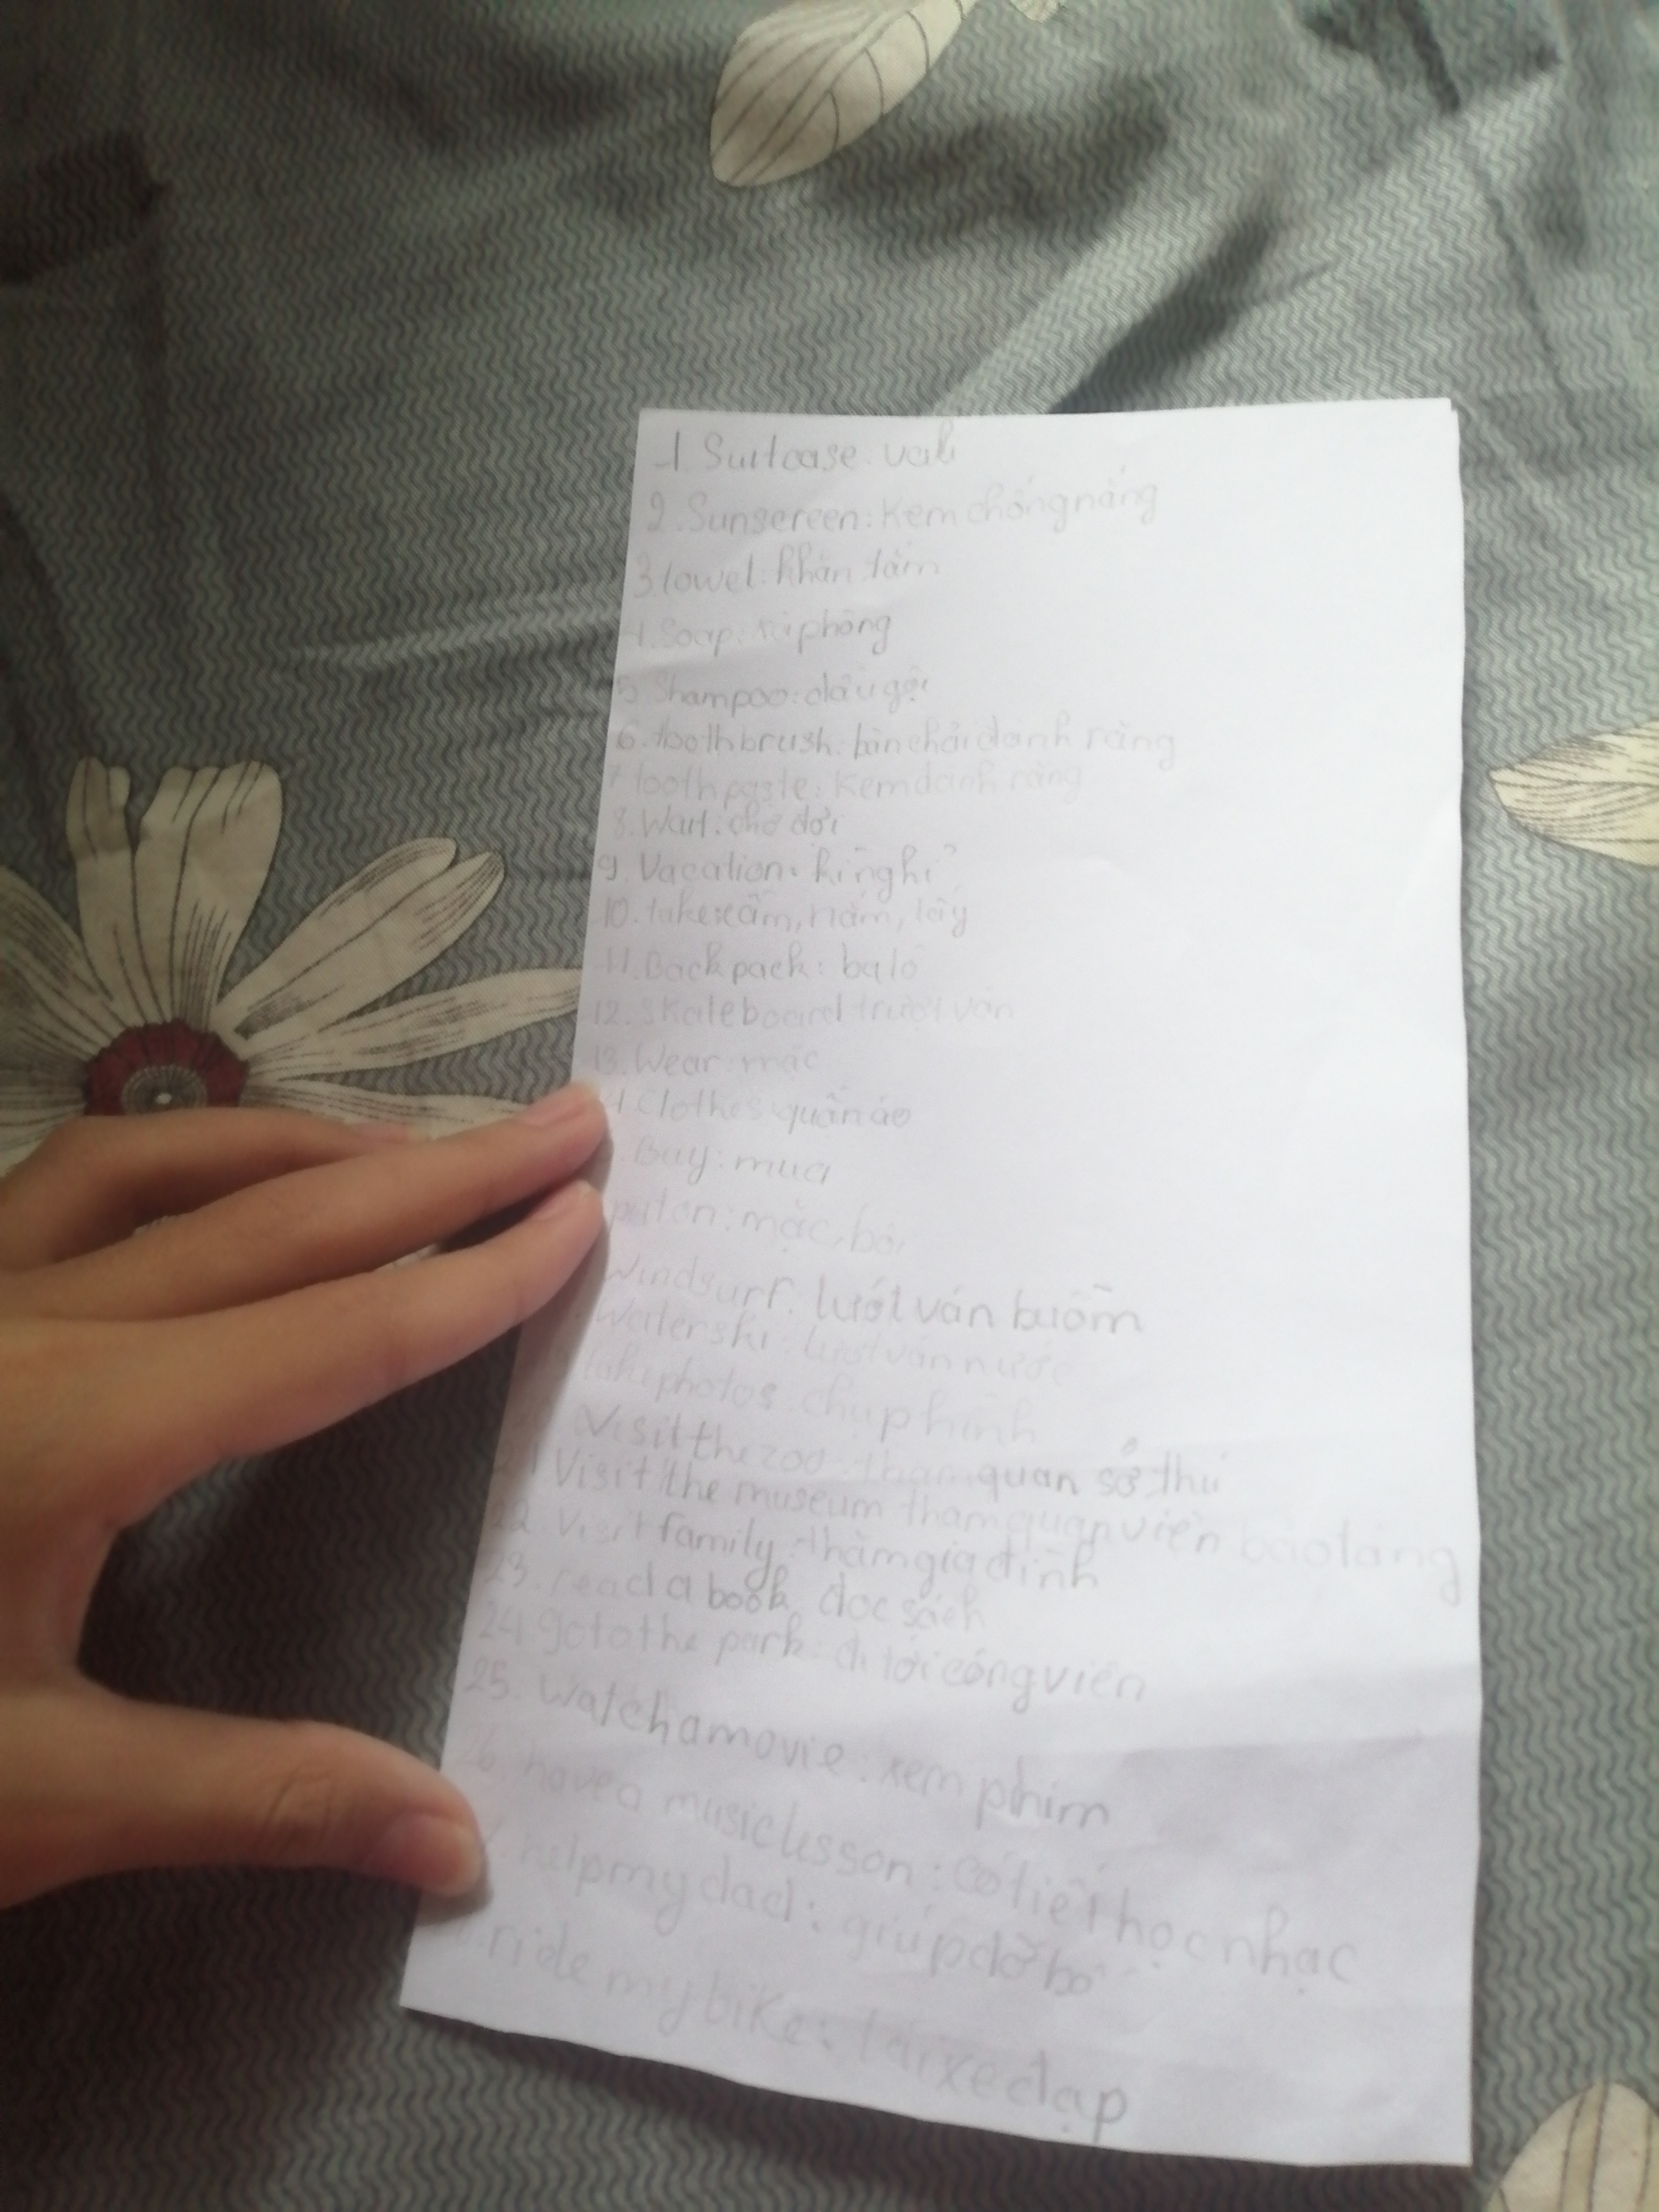 1. Suitcase: vali
2. Sunscreen: Kem chống nắng
3 towel: khăn tắm
4. Soap: xà phòng
5. Shampoo: dầu gội
6. toothbrush: bàn chải đánh răng
7 toothpaste: Kem đánh răng
8. Wait: chờ đợi
9. Vacation: kì nghỉ
10. take: cầm, nắm, lấy
11. Backpack: balo
12. Skateboard trượt ván
13. Wear: mặc
4. Clothes: quần áo
Buy: mua
put on: mặc, bỏ
Windsurf: lướt ván buồm
Waterski: lướt ván nước
take photos: chụp hình
Visit the zoo: tham quan sở thú
21 Visit the museum tham quan viện bảo tàng
22. Visit family: thăm gia đình
23. read a book: đọc sách
24 go to the park: đi tới công viên
25. Watch a movie: xem phim
26 have a music lesson: có tiết học nhạc
help my dad: giúp đỡ bố
ride my bike: lái xe đạp